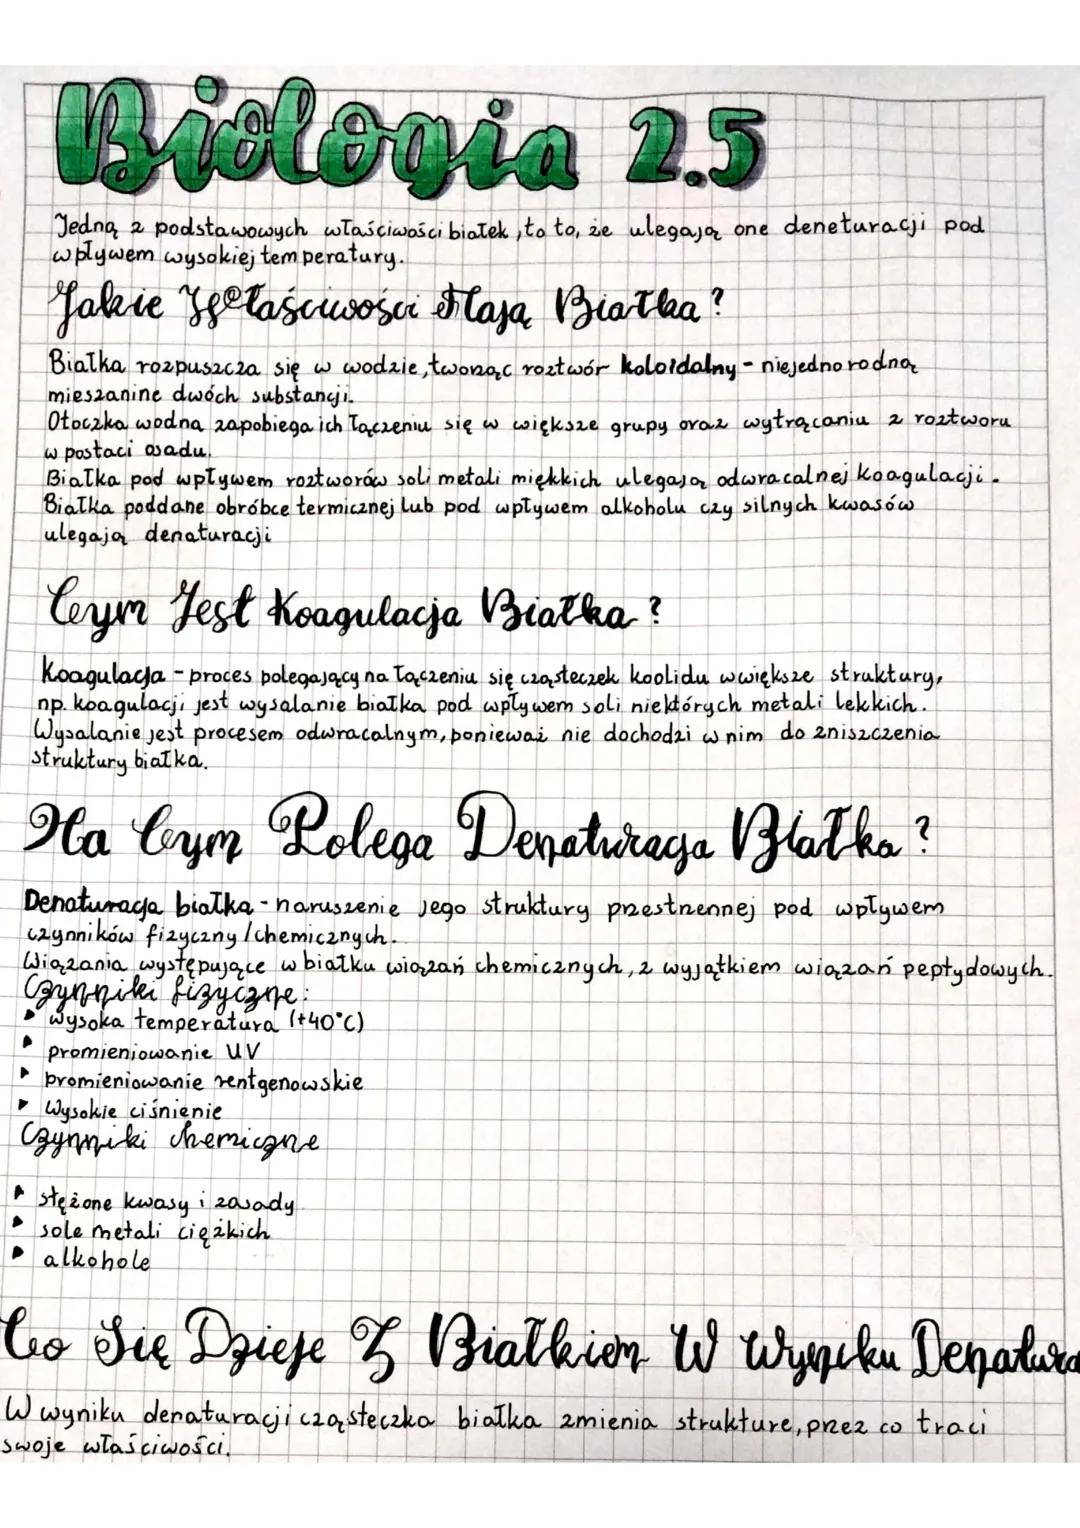 Biologia 2.5
Jedną z podstawowych właściwości białek, to to, że ulegają one deneturacji pod
wpływem wysokiej temperatury.
Jakie Właściwości Mają Białka?
Białka rozpuszcza się w wodzie, tworząc roztwór koloidalny - niejednorodną
mieszanine dwóch substancji.
Otoczka wodna zapobiega ich łączeniu się w większe grupy oraz wytrącaniu z roztworu
w postaci osadu.
Białka pod wpływem roztworów soli metali miękkich ulegają odwracalnej koagulacji.
Białka poddane obróbce termicznej lub pod wpływem alkoholu czy silnych kwasów
ulegają denaturacji
Czym Jest Koagulacja Białka?
Koagulacja - proces polegający na łączeniu się cząsteczek koolidu w większe struktury,
np. koagulacji jest wysalanie białka pod wpływem soli niektórych metali lekkich.
Wysalanie jest procesem odwracalnym, ponieważ nie dochodzi w nim do zniszczenia
struktury białka.
Na Czym Polega Denaturacja Białka?
Denaturacja białka - naruszenie jego struktury przestrzennej pod wpływem
czynników fizyczny/chemicznych.
Wiązania występujące w białku wiązań chemicznych, z wyjątkiem wiązań peptydowych.
Czynniki fizyczne:
▸ wysoka temperatura (+40°C)
▸ promieniowanie UV
▸ promieniowanie rentgenowskie
▸ Wysokie ciśnienie
Czynniki chemiczne
▸ stężone kwasy i zasady
▸ sole metali ciężkich
▸ alkohole
Co Się Dzieje Z Białkiem W Wyniku Denatura
W wyniku denaturacji cząsteczka białka zmienia strukture, przez co traci
swoje właściwości.